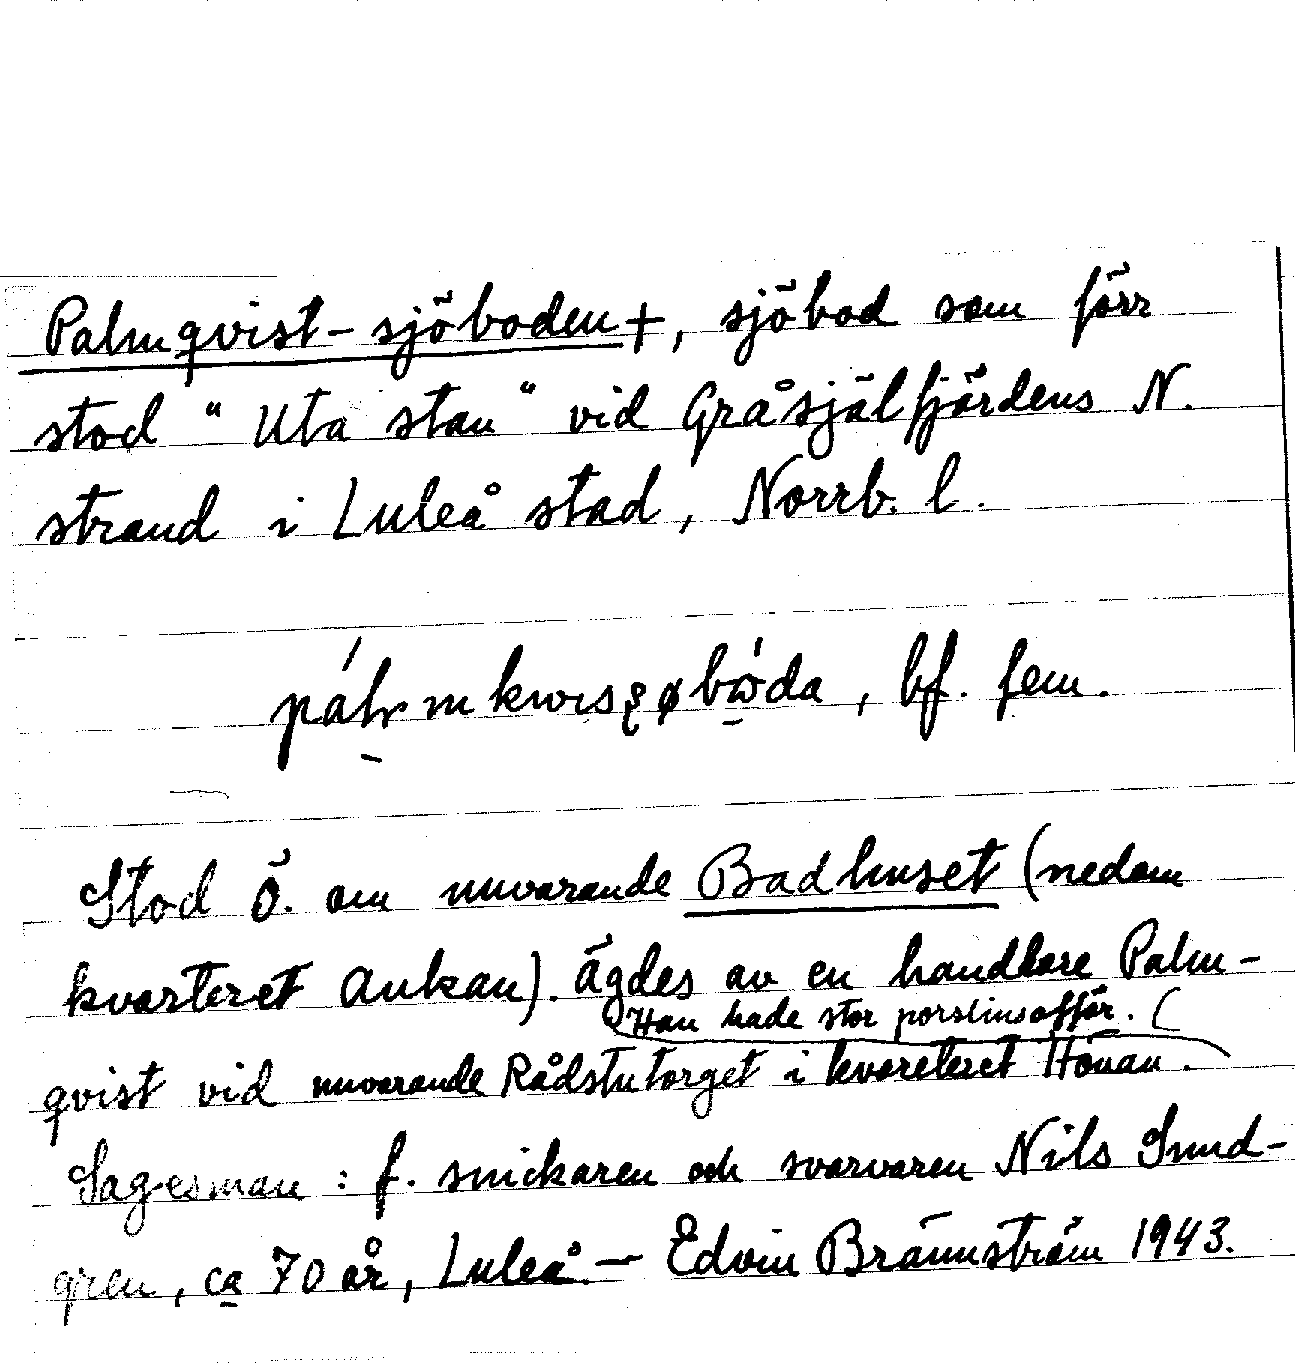 Palmqvist-sjöboden +, sjöbod som förr
stod "Uta stan" vid Gråsjälfjärdens N.
strand i Luleå stad, Norrb. l.
bf. fem.
Stod Ö. om nuvarande Badhuset (nedom
kvarteret Ankan). Ägdes av en handlare Palm-
Han hade stor porslinsaffär.
qvist vid nuvarande Rådstutorget i kvarteret Hönan.
Sagesman: f. snickaren och svarvaren Nils Sund-
gren, ca 70 år, Luleå. — Edvin Brännström 1943.